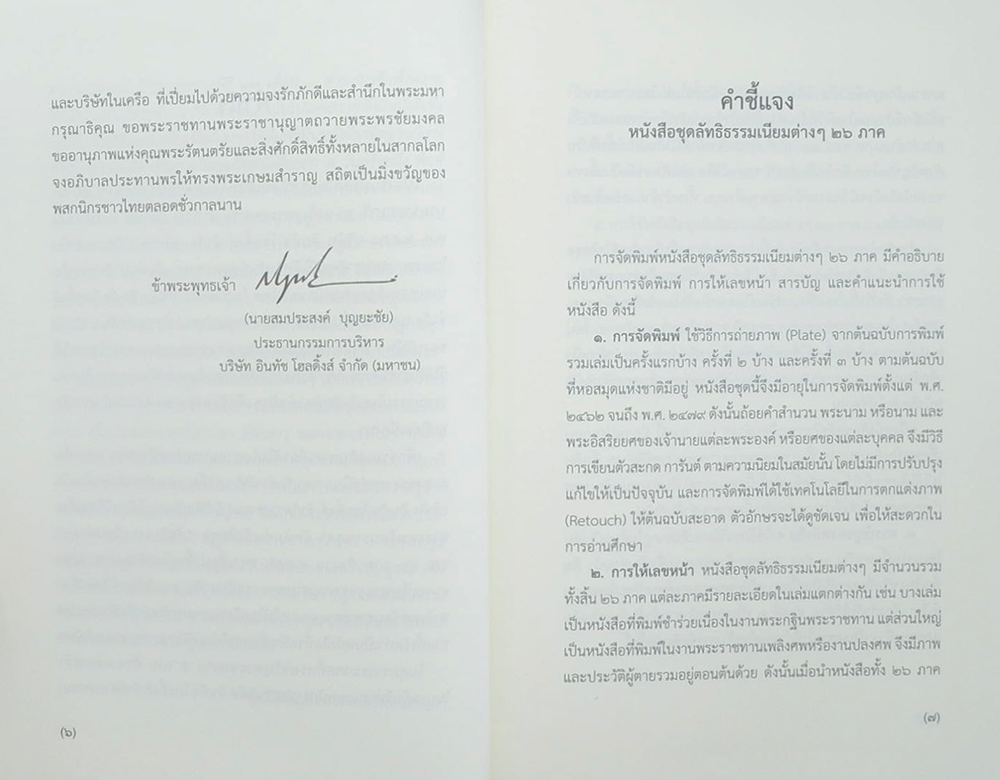 และบริษัทในเครือ ที่เปี่ยมไปด้วยความจงรักภักดีและสำนึกในพระมหา
กรุณาธิคุณ ขอพระราชทานพระราชานุญาตถวายพระพรชัยมงคล
ขออานุภาพแห่งคุณพระรัตนตรัยและสิ่งศักดิ์สิทธิ์ทั้งหลายในสากลโลก
จงอภิบาลประทานพรให้ทรงพระเกษมสำราญ สถิตเป็นมิ่งขวัญของ
พสกนิกรชาวไทยตลอดชั่วกาลนาน
ข้าพระพุทธเจ้า
(นายสมประสงค์ บุญยะชัย)
ประธานกรรมการบริหาร
บริษัท อินทัช โฮลดิ้งส์ จำกัด (มหาชน)
(๖)
คำชี้แจง
หนังสือชุดลัทธิธรรมเนียมต่างๆ ๒๖ ภาค
การจัดพิมพ์หนังสือชุดลัทธิธรรมเนียมต่างๆ ๒๖ ภาค มีคำอธิบาย
เกี่ยวกับการจัดพิมพ์ การให้เลขหน้า สารบัญ และคำแนะนำการใช้
หนังสือ ดังนี้
๑. การจัดพิมพ์ ใช้วิธีการถ่ายภาพ (Plate) จากต้นฉบับการพิมพ์
รวมเล่มเป็นครั้งแรกบ้าง ครั้งที่ ๒ บ้าง และครั้งที่ ๓ บ้าง ตามต้นฉบับ
ที่หอสมุดแห่งชาติมีอยู่ หนังสือชุดนี้จึงมีอายุในการจัดพิมพ์ตั้งแต่ พ.ศ.
๒๔๖๒ จนถึง พ.ศ. ๒๔๗๙ ดังนั้นถ้อยคำสำนวน พระนาม หรือนาม และ
พระอิสริยยศของเจ้านายแต่ละพระองค์ หรือยศของแต่ละบุคคล จึงมีวิธี
การเขียนตัวสะกด การันต์ ตามความนิยมในสมัยนั้น โดยไม่มีการปรับปรุง
แก้ไขให้เป็นปัจจุบัน และการจัดพิมพ์ได้ใช้เทคโนโลยีในการตกแต่งภาพ
(Retouch) ให้ต้นฉบับสะอาด ตัวอักษรจะได้ดูชัดเจน เพื่อให้สะดวกใน
การอ่านศึกษา
๒. การให้เลขหน้า หนังสือชุดลัทธิธรรมเนียมต่างๆ มีจำนวนรวม
ทั้งสิ้น ๒๖ ภาค แต่ละภาคมีรายละเอียดในเล่มแตกต่างกัน เช่น บางเล่ม
เป็นหนังสือที่พิมพ์ชำร่วยเนื่องในงานพระกฐินพระราชทาน แต่ส่วนใหญ่
เป็นหนังสือที่พิมพ์ในงานพระราชทานเพลิงศพหรืองานปลงศพ จึงมีภาพ
และประวัติผู้ตายรวมอยู่ตอนต้นด้วย ดังนั้นเมื่อนำหนังสือทั้ง ๒๖ ภาค
(๗)